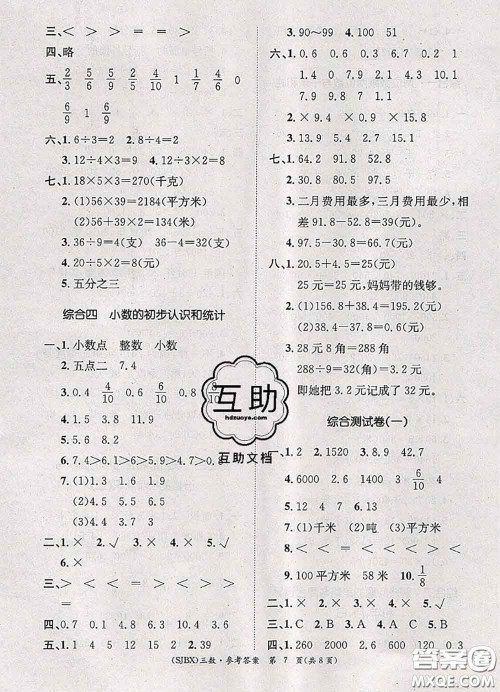 三、＞ ＜ ＞ ＝ ＝ ＞
四、略
五、2/3 2/6 5/8 4/10 1 4/7 4/9 1/4 0
6/9 1 6/9
六、1.6÷3＝2 2.8÷4＝2
3.12÷4×3 4.12÷3×2＝8
七、1.18×5×3＝270(千克)
2.(1)56×39＝2184(平方米)
(2)56＋39×2＝134(米)
3.36÷9＝4(支) 36－4＝32(支)
4.20÷5×2＝8(元)
5.五分之三
综合四 小数的初步认识和统计
一、1.小数点 整数 小数
2.五点二 7.4
3.0.4 4/10 0.6 6/10 0.8 8/10
4.1.5 3.8
5.1.6 2.8 11.9
6.7.4＞6.1＞4.7＞1.6＞0.8
7.(1)4.5
(2)4.4
(3)1.4
二、1.× 2.× 3.× 4.× 5.√
6.×
三、＜ ＞ ＝ ＞ ＜ ＞ ＞ ＞
四、0.7 0.1 4.5 1.9 1.4 0.8
五、13.2 4.4 15.1 4.9 19.2
3.90～99 4.100 51
六、1.0.6 0.6 0.3 0.7 0.2
1.1 7.9 4.9 1.1 3.6
7.9 9.1 8
2.× 9.4 × 2.9 × 20.4
七、1.64.2 91.8 52.8
2.30.8 97.4 85
3.二月费用最多，三月费用最少，相
差 91.8－52.8＝39(元)
4.97.4－30.8＝66.6(元)
5.97.1－30.4＝66.7(元)
八、1.2.8＋22.2＝25(元)
25 元＝25 元，妈妈带的钱够。
2.(1)156.8＋38.4＝195.2(元)
(2)156.8－38.4＝118.4(元)
3.28 元 8 角＝288 角
288÷9＝32(角)＝3.2(元)
即她把 3.2 元记成了 32 元。
综合测试卷(一)
一、1.2 2.1520 3.9 8
4.6000 2600 1400 3 6/10 0.4
5.4 12 6.4 7.8 13
7.(1)千米 (2)吨 (3)平方米
8.＜ ＝ ＜ ＜ ＜ ＜
9.100 平方米 58 米 10.1/8
二、1.× 2.√ 3.× 4.× 5.√
(SJBX)三数·参考答案 第 7 页(共 8 页)
互助
hdzuoye.com
互助文档